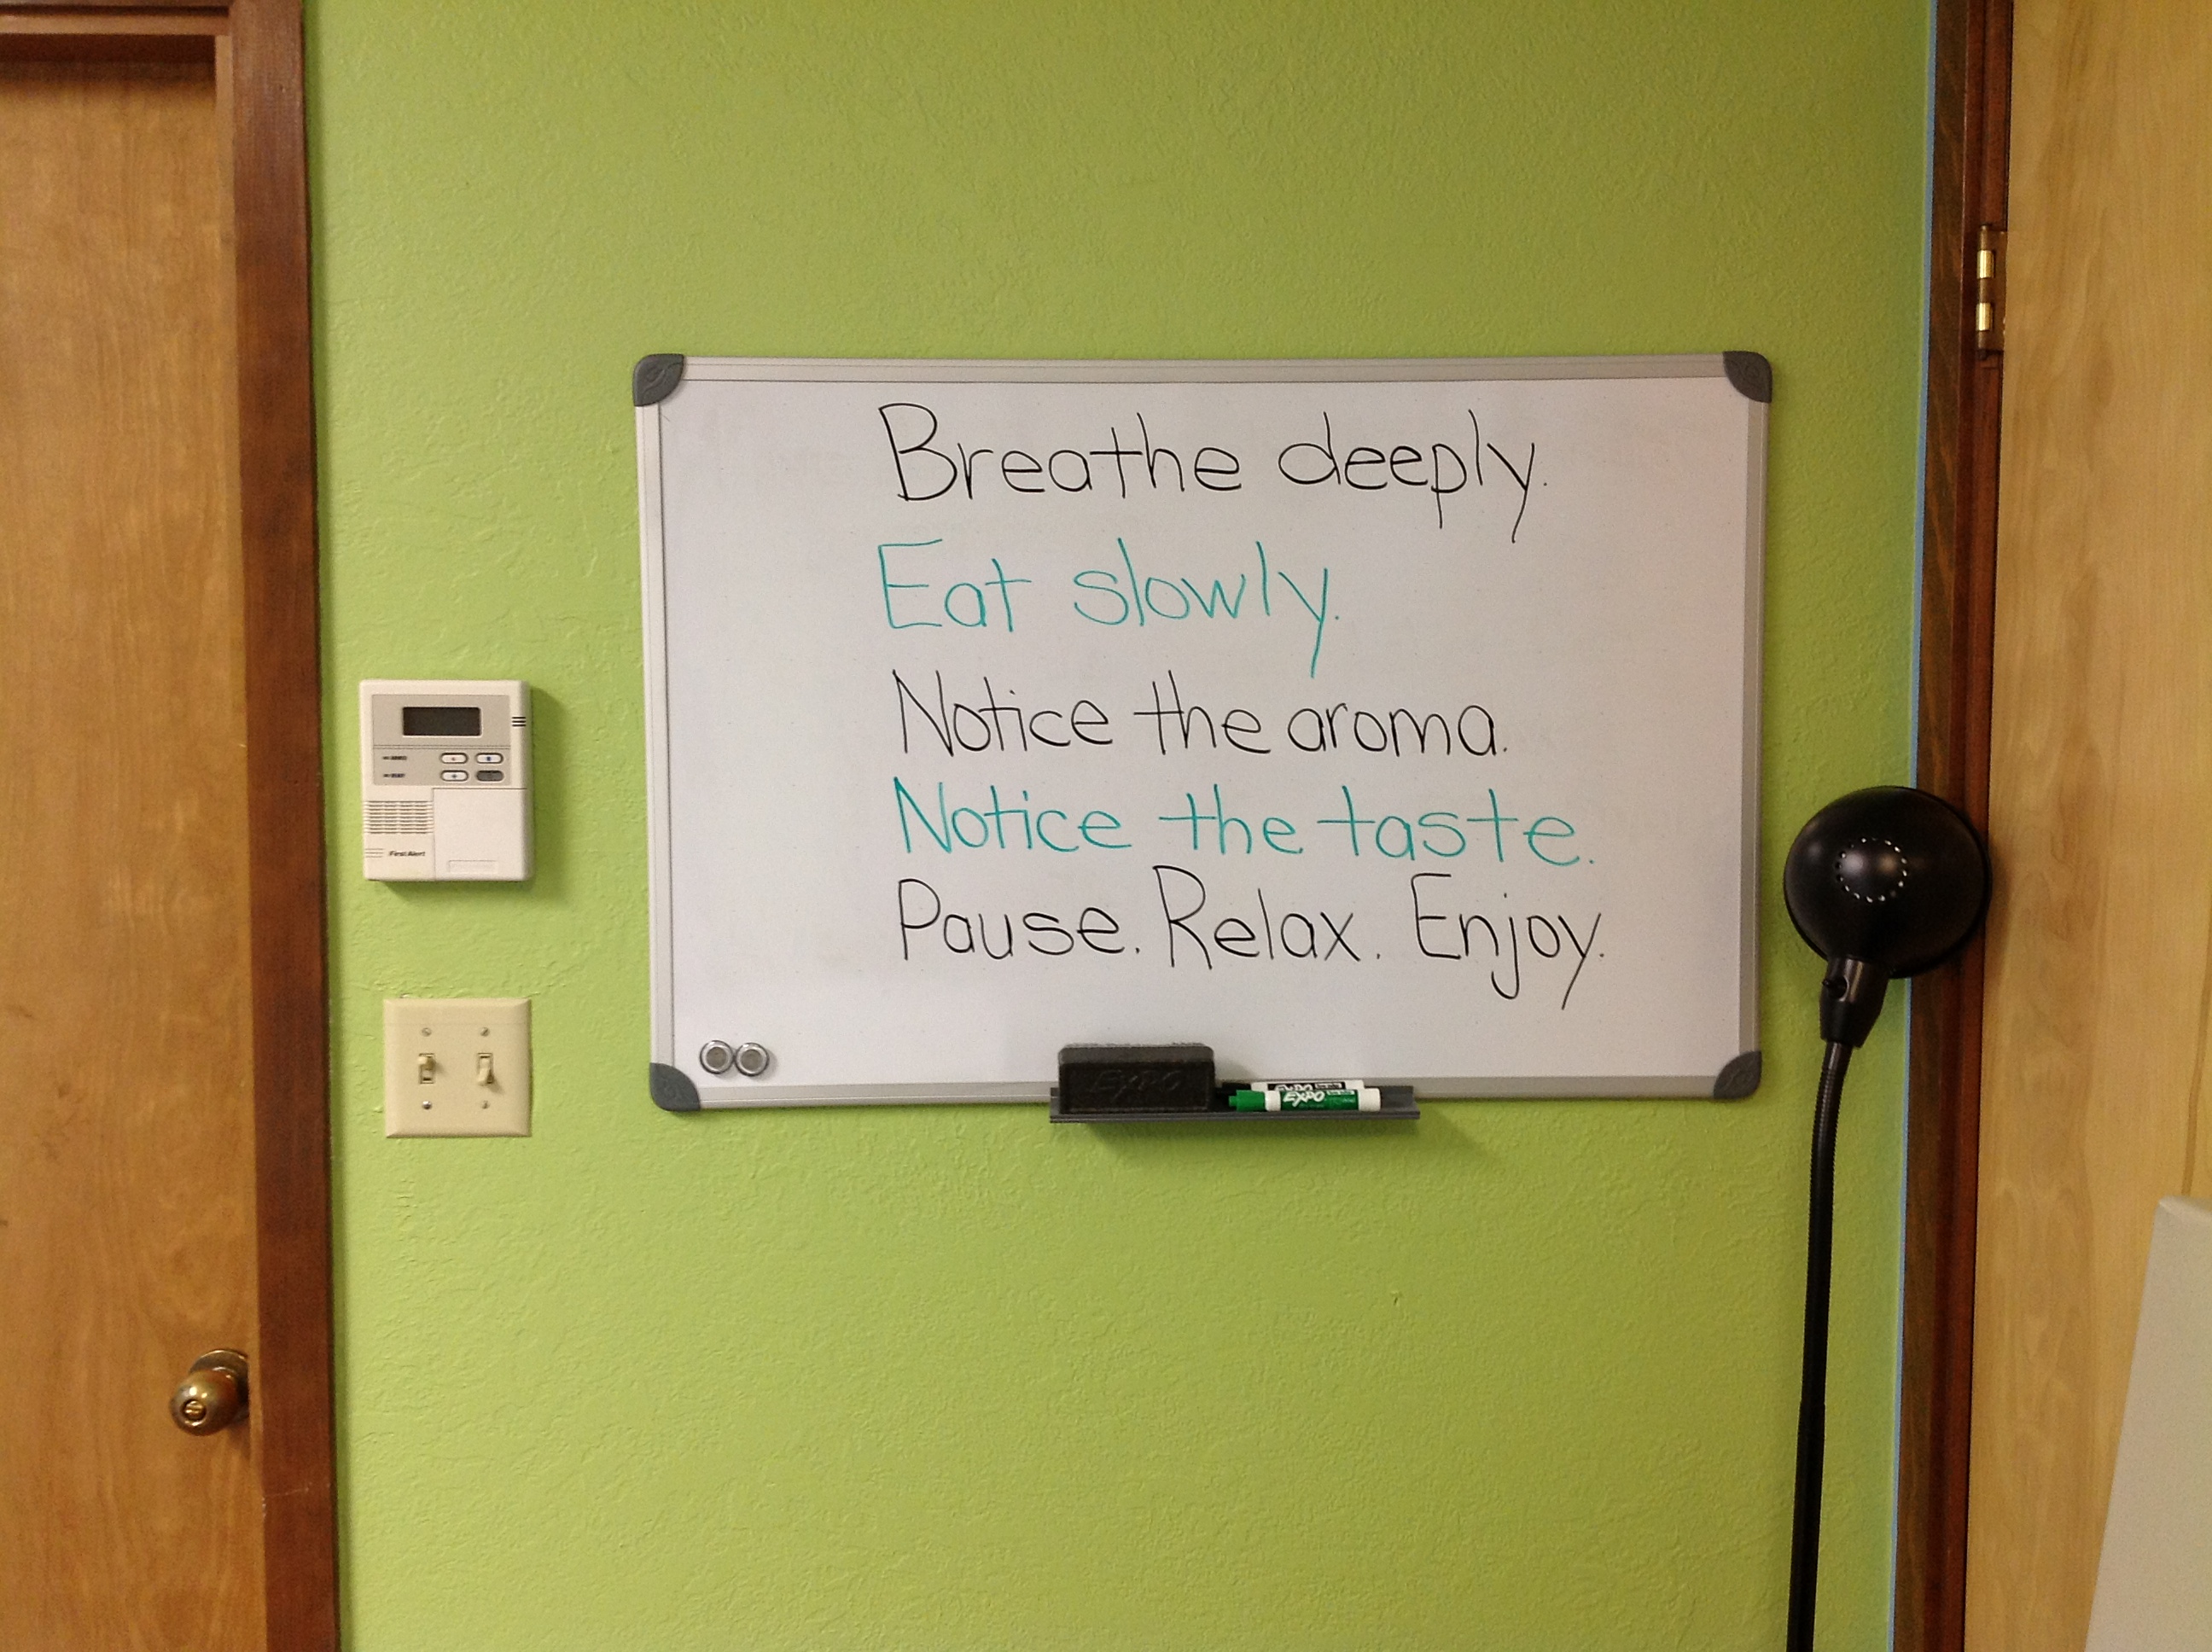 Breathe deeply.
Eat slowly.
Notice the aroma.
Notice the taste.
Pause. Relax. Enjoy.
First Alert
EXPO
EXPO